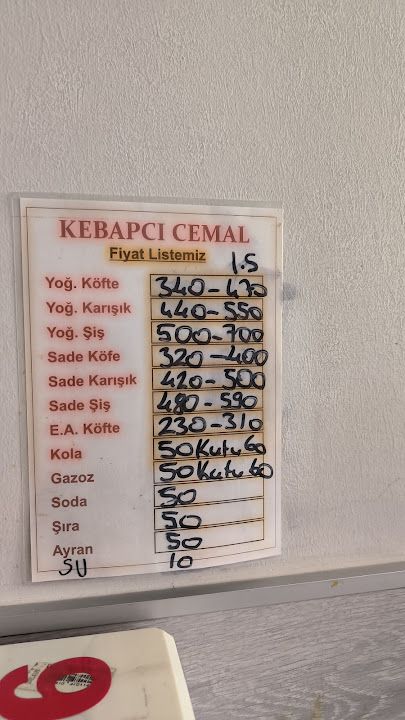 KEBAPCI CEMAL
Fiyat Listemiz
1.5
Yoğ. Köfte 340-430
Yoğ. Karışık 440-550
Yoğ. Şiş 500-700
Sade Köfe 320-400
Sade Karışık 420-500
Sade Şiş 480-590
E.A. Köfte 230-310
Kola 50 Kutu 60
Gazoz 50 Kutu 60
Soda 50
Şıra 50
Ayran 50
SU 10